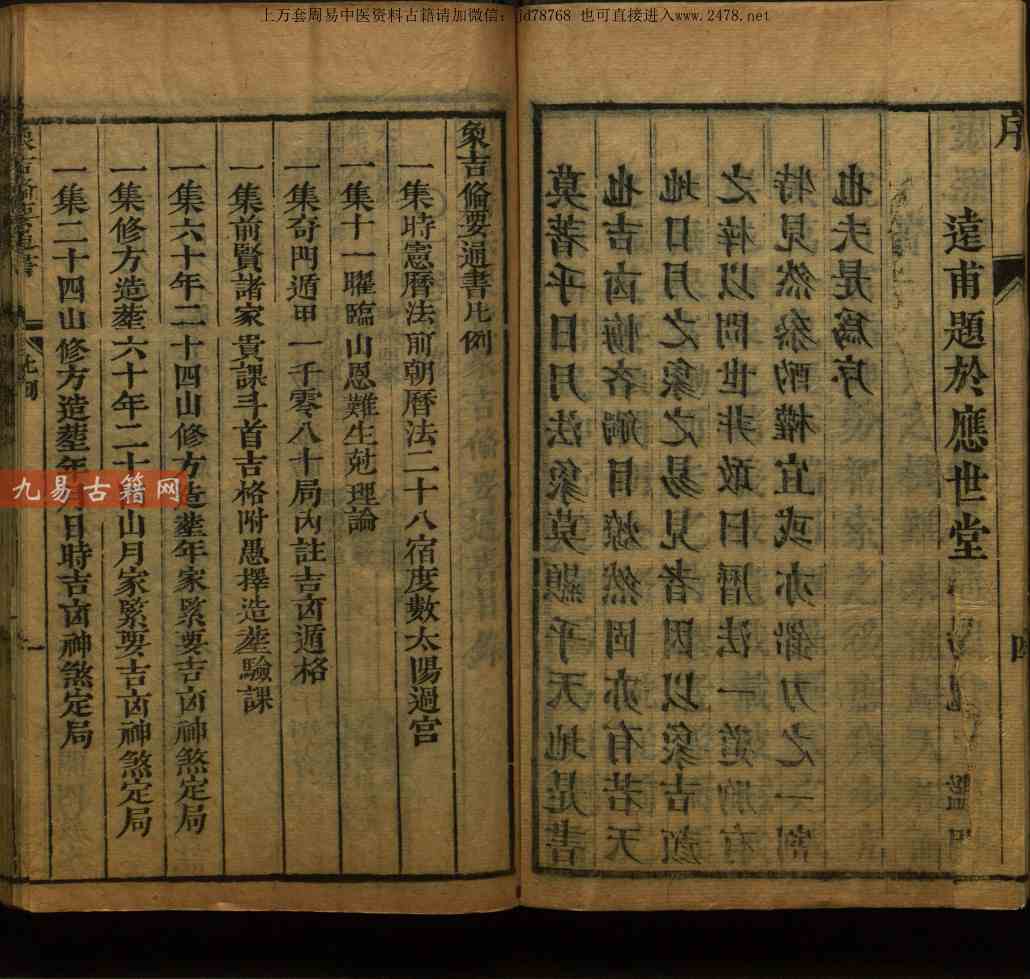 上万套周易中医资料古籍请加微信：jd78768 也可直接进入www.2478.net
序
四
遠甫題於應世堂
莫著乎日月法象莫顯乎天地是書
也吉凶悔吝 目燎然固亦有若天
地日月之象之易見者因以象吉顏
之梓以問世非敢曰曆法一道則有
特見然叅酌權宜或亦鉛刀之一割
也夫是爲序
象吉俻要通書凡例
一集時憲曆法前朝曆法二十八宿度數太陽過宮
一集十一曜臨山恩難生尅理論
一集奇門遁甲一千零八十局內註吉凶遁格
一集前賢諸家貴課斗首吉格附愚擇造塟驗課
一集六十年二十四山修方造塟年家緊要吉凶神煞定局
一集修方造塟六十年二十四山月家緊要吉凶神煞定局
一集二十四山修方造塟年月日時吉凶神煞定局
凡例
一
九易古籍网